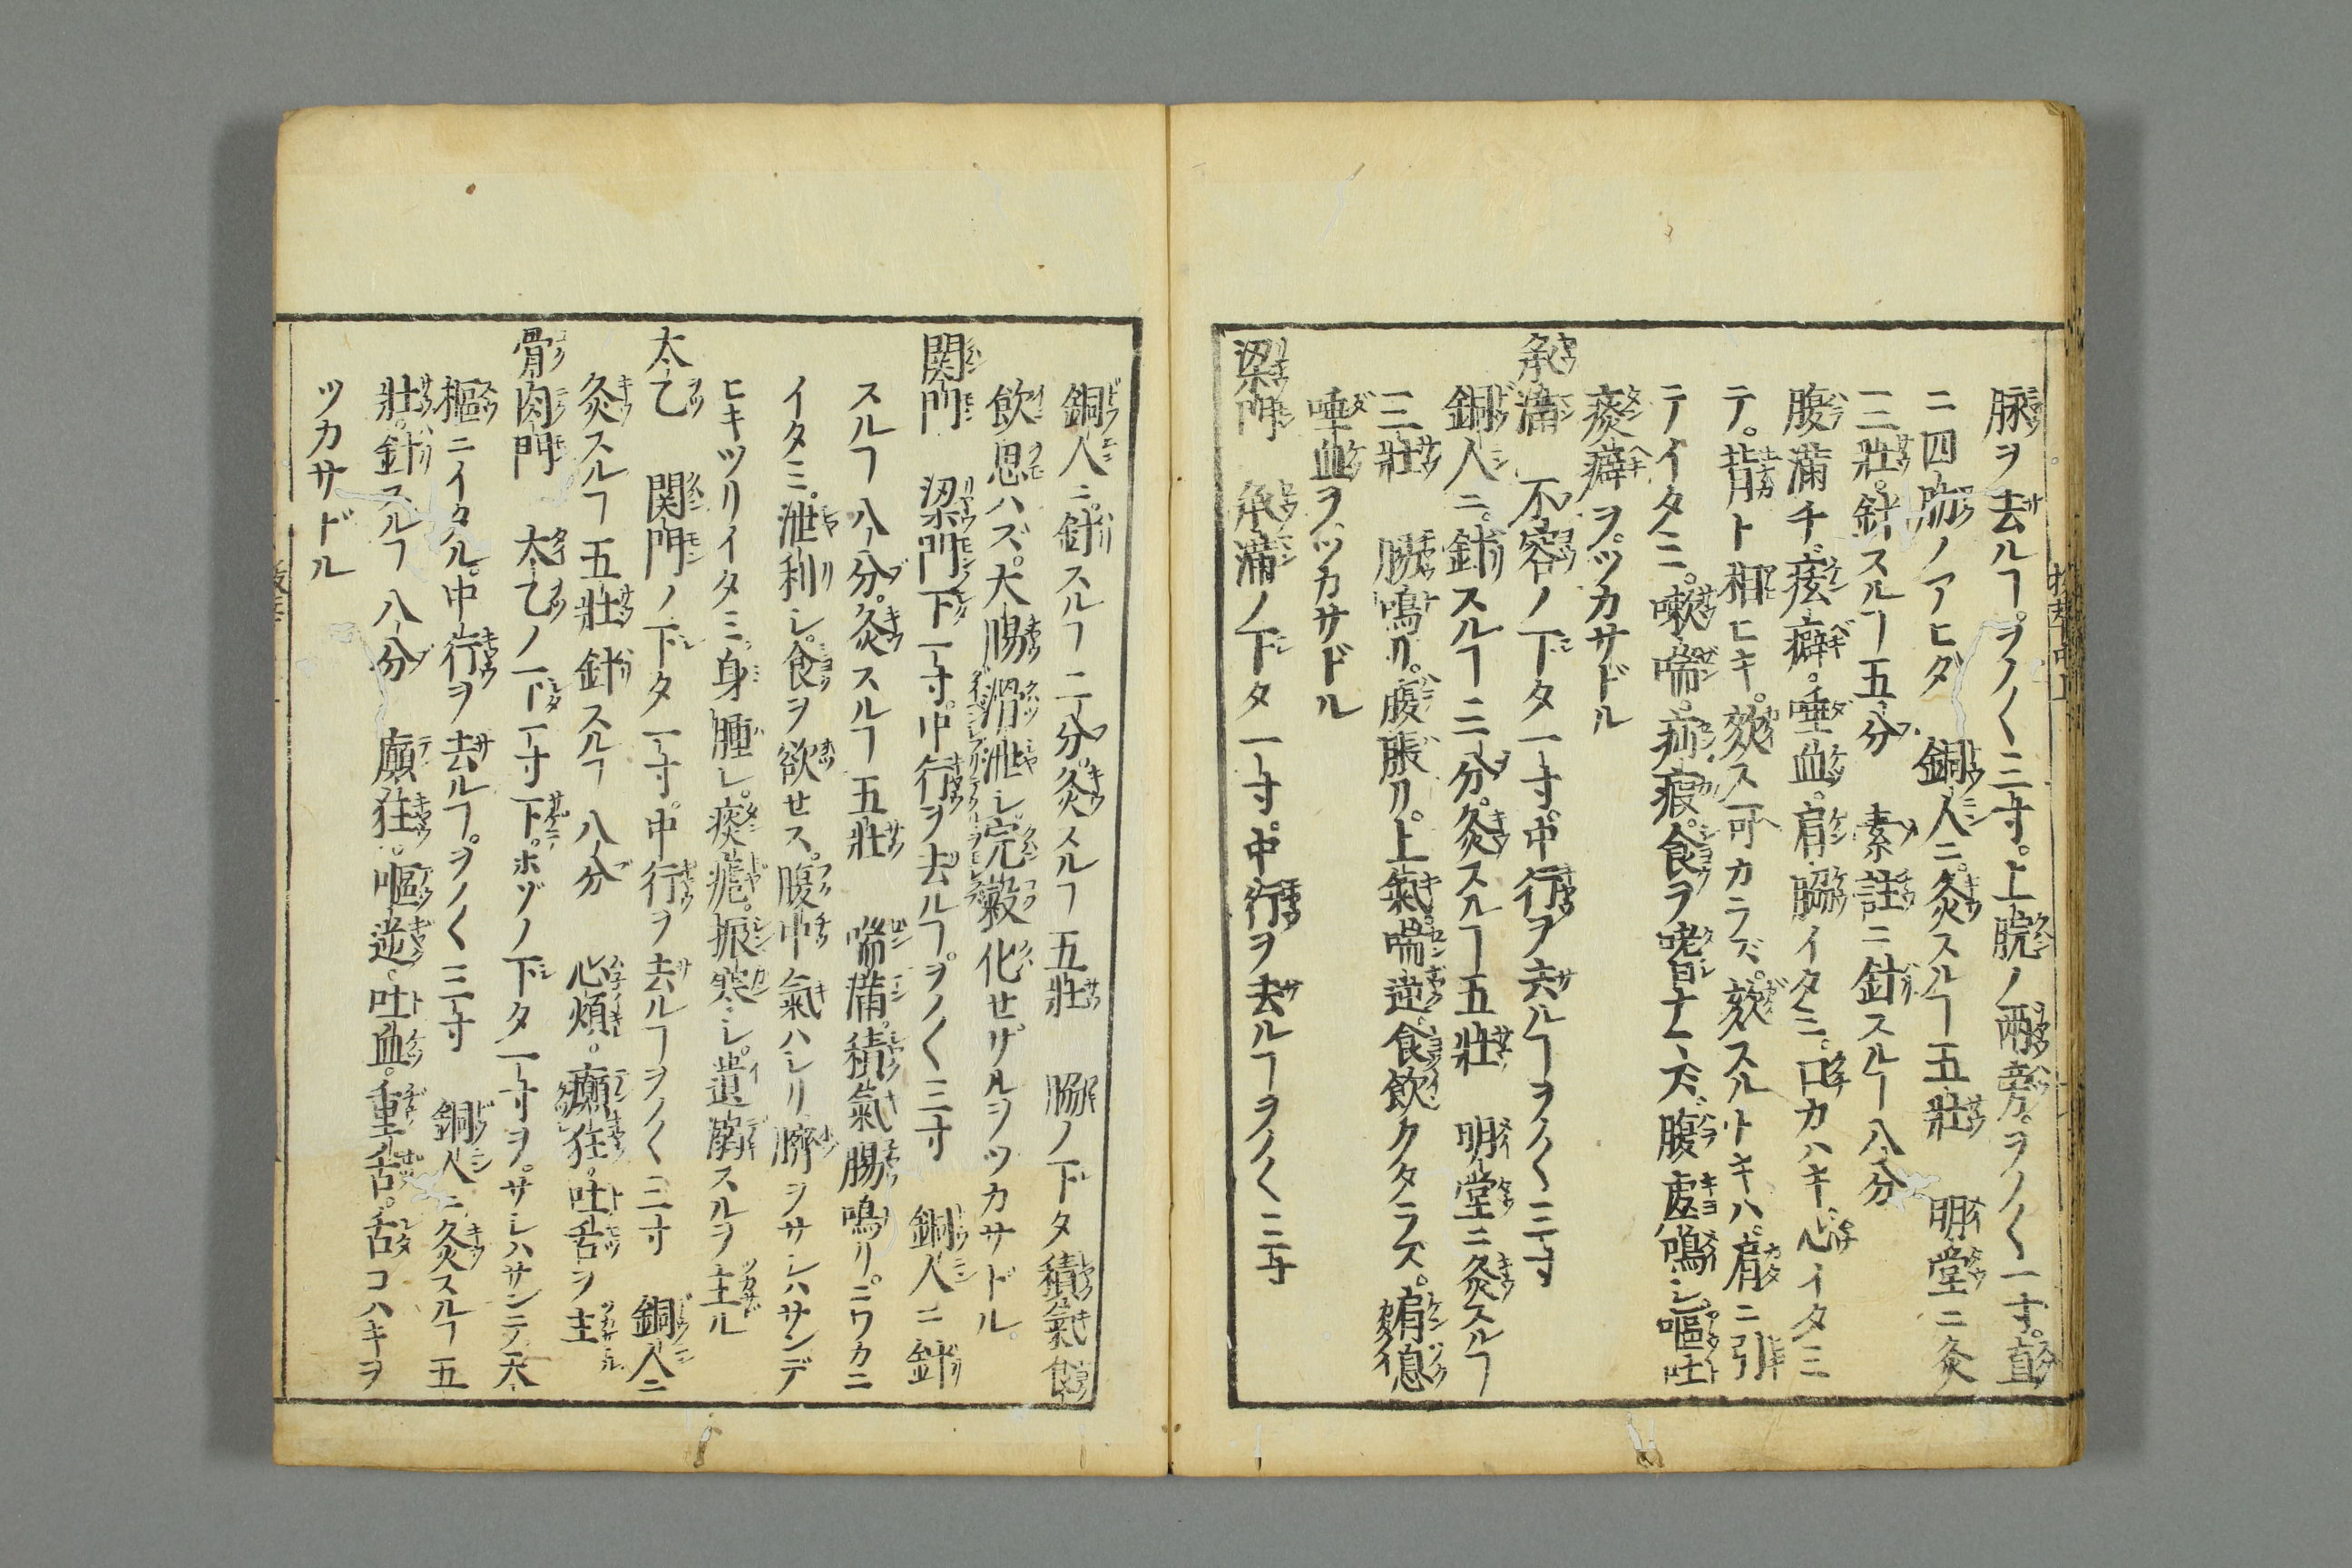 脉ヲ去ルヿ。ヲノ〱三寸。上脘ノ兩旁。ヲノ〱一寸。直
ニ四肋ノアヒダ　銅人ニ。灸スルヿ五壯　明堂ニ灸
三壯。針スルヿ五分　素註ニ針スルヿ八分
腹滿チ。痃癖。唾血。肩脇イタミ。口カハキ。心イタミ
テ。背ト相ヒキ。欬ス可カラズ。欬スルトキハ。肩ニ引
テイタミ。嗽喘。疝瘕。食ヲ嗜ナマズ。腹虚鳴シ。嘔吐
痰癖ヲ。ツカサドル
承滿　不容ノ下タ一寸。中行ヲ去ルヿヲノ〱三寸
銅人ニ。針スルヿ三分。灸スルヿ五壯　明堂ニ灸スルヿ
三壯　腸鳴リ。腹脹リ。上氣。喘逆。食飲クタラズ。肩息
唾血ヲ。ツカサドル
梁門　承滿ノ下タ一寸。中行ヲ去ルヿヲノ〱三寸
銅人ニ。針スルヿ三分。灸スルヿ五壯　脇ノ下タ積氣食
飲思ハズ。大腸滑泄シ。完穀化セザルヲツカサドル。
関門　梁門下一寸。中行ヲ去ルヿ。ヲノ〱三寸　銅人ニ針
スルヿ八分。灸スルヿ五壯　喘滿。積氣。腸鳴リ。ニワカニ
イタミ。泄利シ。食ヲ欲セス。腹中氣ハシリ臍ヲサシハサンデ
ヒキツリイタミ。身腫レ。痰瘧。振寒シ。遺溺スルヲ主ル
太乙　関門ノ下タ一寸。中行ヲ去ルヿヲノ〱三寸　銅人ニ
灸スルヿ五壯針スルヿ八分　心煩。癲狂。吐舌ヲ主ル
骨肉門　太乙ノ下一寸下。ホゾノ下タ一寸ヲ。サシハサンテ天
樞ニイタル。中行ヲ去ルヿ。ヲノ〱三寸　銅人ニ灸スルヿ五
壯。針スルヿ八分　癲狂。嘔逆。吐血。重舌。舌コハキヲ
ツカサドル